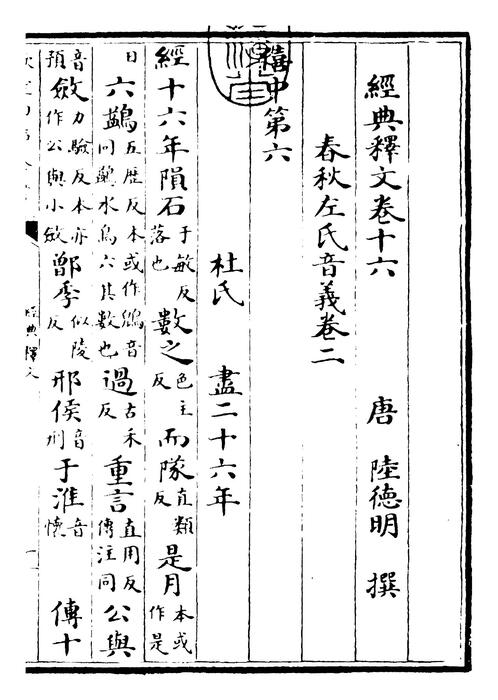 經典釋文卷十六 唐 陸德明 撰
春秋左氏音義卷二
僖中第六
杜氏 盡二十六年
經十六年隕石于敏反落也數之色主反而隊直類反是月本或作是
日六鷁五歷反本或作鶂音同鷁水鳥六其數也過古禾反重言直用反傳注同公與
音預斂力驗反本亦作公與小斂鄫季似陵反邢侯音刑于淮音懷 傳十
經典釋文